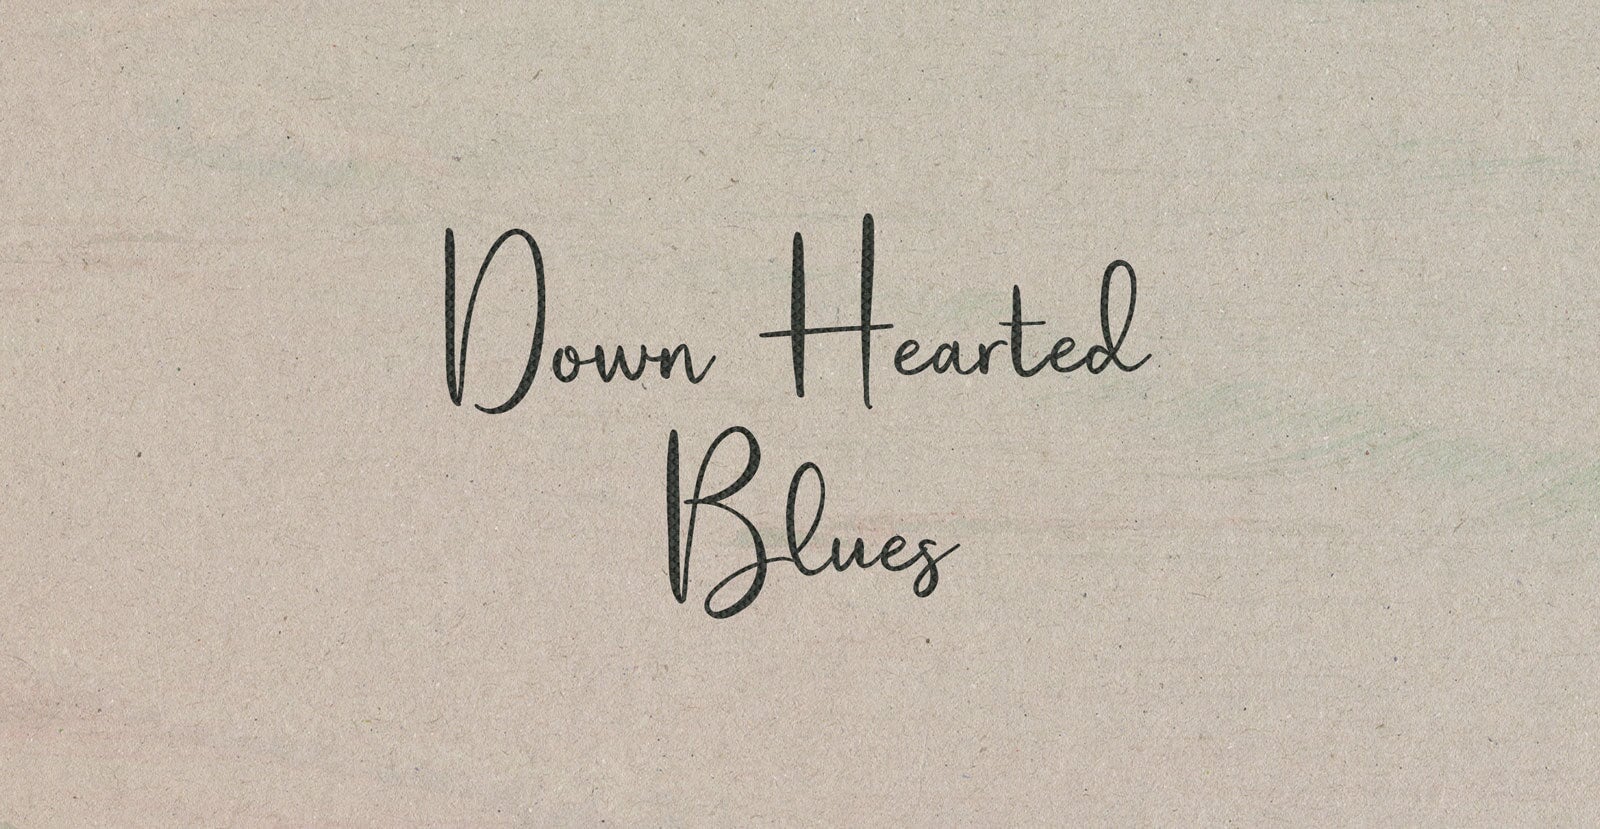 Down Hearted
Blues